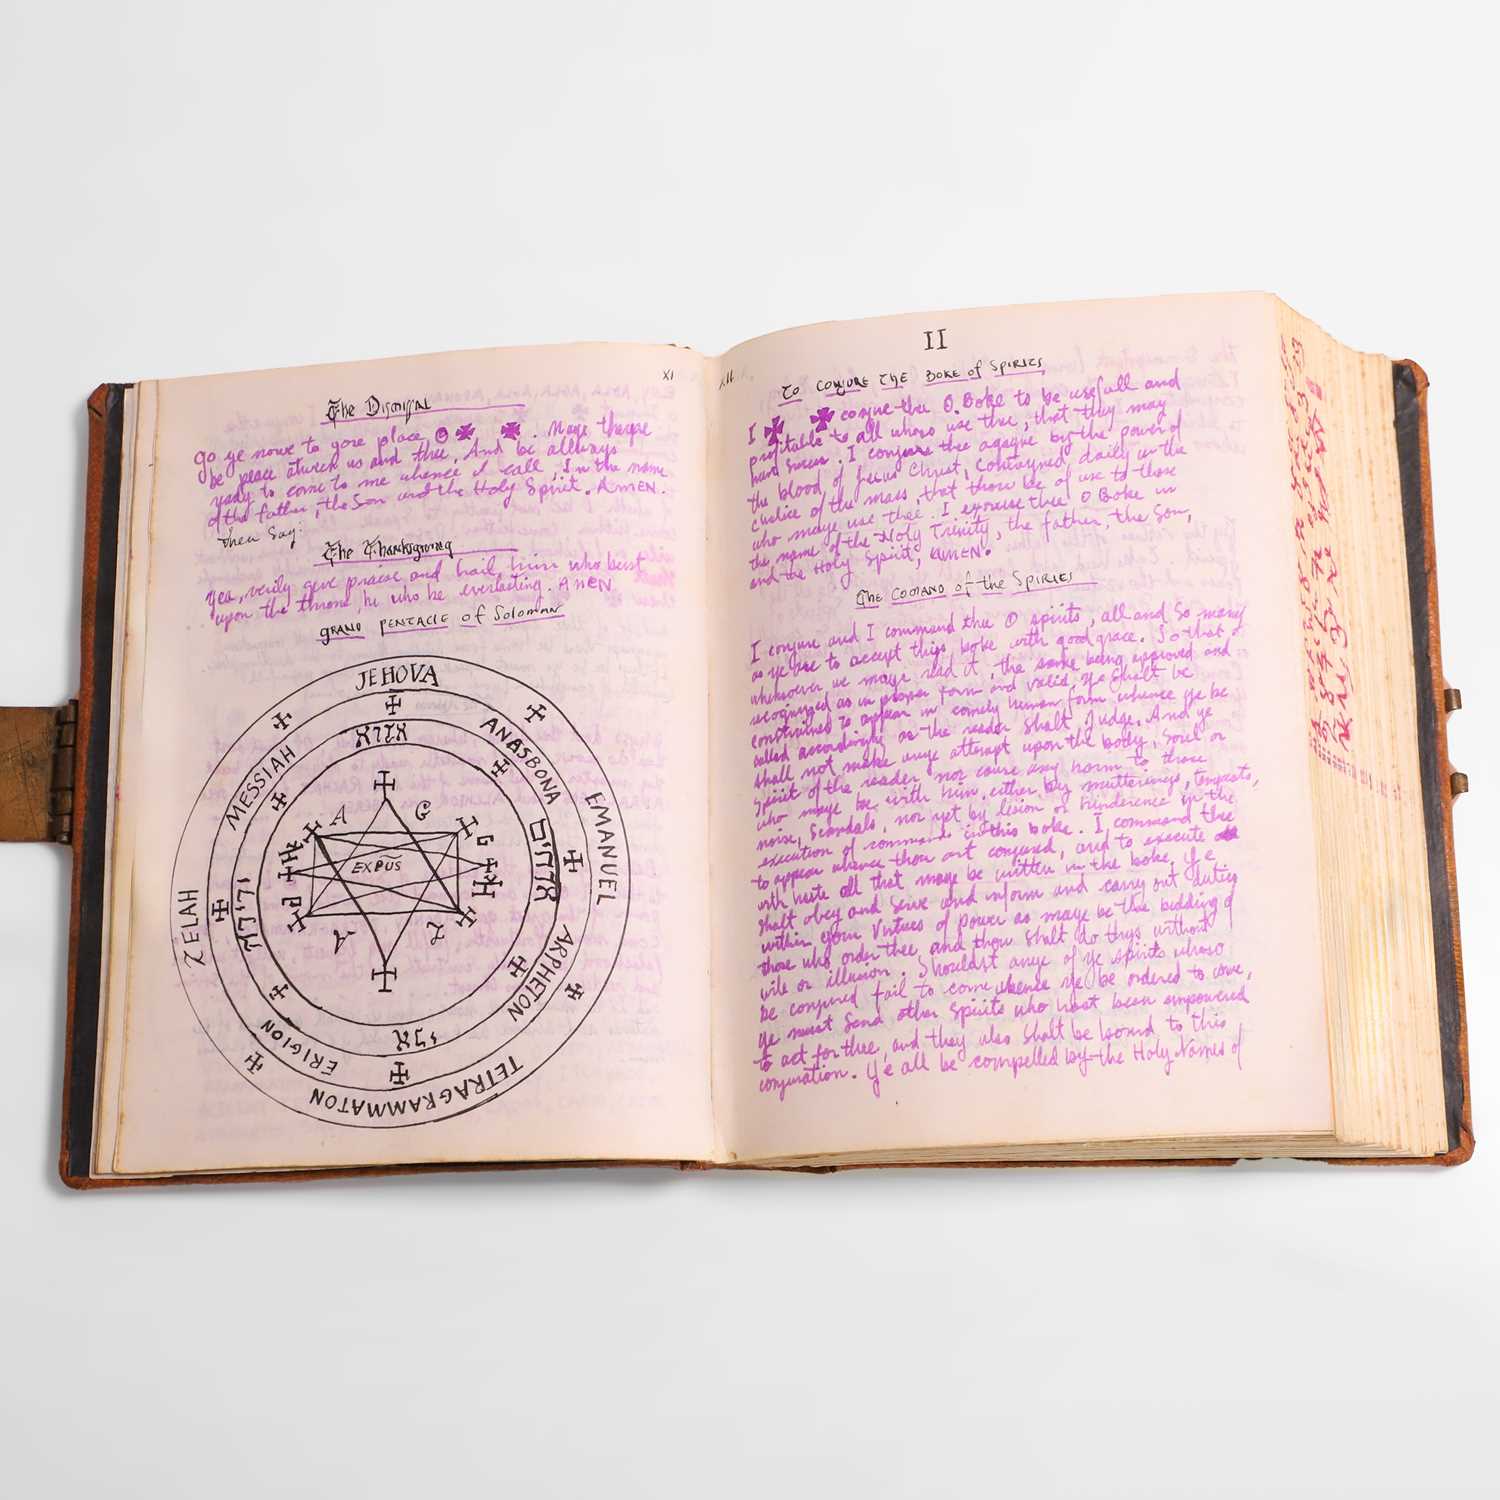 XI
The Dismissal
go ye nowe to youre place O ✠ ✠. Maye theyre
be peace atwext us and thee. And be allways
ready to come to me whence I call, In the name
of the father, the Son and the Holy Spirit. AMEN.
Then Say:
The Thanksgiving
yea, verily give praise and hail him who beist
upon the throne, he who be everlasting. AMEN
GRAND PENTACLE of SOLOMAN
JEHOVA
EMANUEL
TETRAGRAMMATON
ZELAH
MESSIAH
ANASBONA
ARPHETON
ERIGION
A G
EXPUS
A L
XII
II
TO CONJURE THE BOKE of SPIRITS
I ✠ ✠ conjure thee O. Boke to be usefull and
profitable to all whoso use thee, that they may
have success. I conjure thee agayne by the power of
the blood of Jesus Christ, contayned daily in the
chalice of the mass, that thou be of use to those
who maye use thee. I exorcise thee O Boke in
the name of the Holy Trinity, the father, the Son,
and the Holy Spirit, AMEN.
The COMAND of the SPIRITS
I conjure and I command thee O spirits, all and So many
as ye are to accept thys boke with good grace. So that
whensoever we maye read it, the same being approved and
recognized as in proper form and valid, ye Shalt be
constrained to appear in comely human form whence ye be
called accordingly as the reader Shalt Judge. And ye
Shalt not make anye attempt upon the body, Soul or
Spirit of the reader nor cause any harm to those
who maye be with him, either by mutterings, tempests,
noise, Scandals, nor yet by lesion or hinderence in the
execution of commands in this boke. I command thee
to appear whence thou art conjured, and to execute
with haste all that maye be written in the boke. Ye
Shalt obey and Serve and inform and carry out duties
within your Virtues of power as maye be the bidding of
those who order thee, and thou Shalt do thys without
wile or illusion. Shouldst anye of ye spirits whoso
be conjured fail to come whence ye be ordered to come,
ye must Send other Spirits who hast been empowered
to act for thee, and they also Shalt be bound to this
conjuration. Ye all be compelled by the Holy Names of